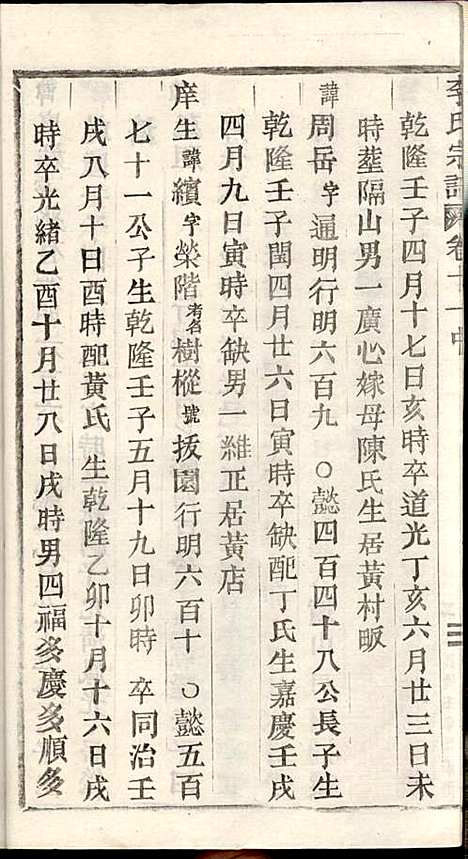 李氏宗譜 卷十一中
乾隆壬子四月十七日亥時卒道光丁亥六月廿三日未
時塟隔山男一廣心嫁母陳氏生居黃村畈
諱周岳字通明行明六百九○懿四百四十八公長子生
乾隆壬子閏四月廿六日寅時卒缺配丁氏生嘉慶壬戌
四月九日寅時卒缺男一維正居黃店
庠生諱纘字榮階考名樹樅號拔園行明六百十○懿五百
七十一公子生乾隆壬子五月十九日卯時卒同治壬
戌八月十日酉時配黃氏生乾隆乙卯十月十六日戌
時卒光緒乙酉十月廿八日戌時男四福多慶多順多